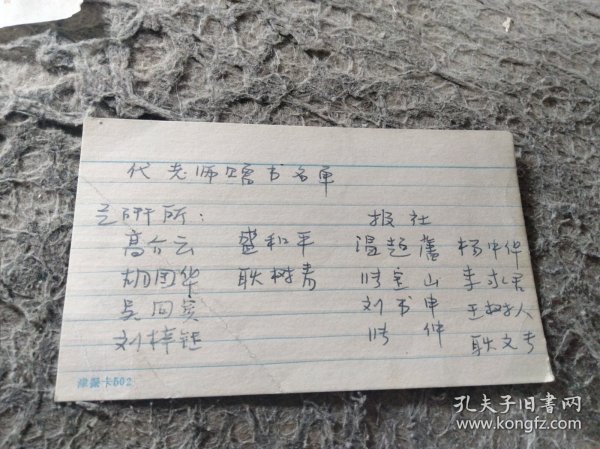 代老师赠书名单
艺研所： 报社
高介云 盛和平 温超藩 杨中华
胡国华 耿树青 陈宝山 李永君
吴同宾 刘书申 王树人
刘梓钰 陈仲 耿文专
津报卡502
孔夫子旧书网
www.kongfz.com